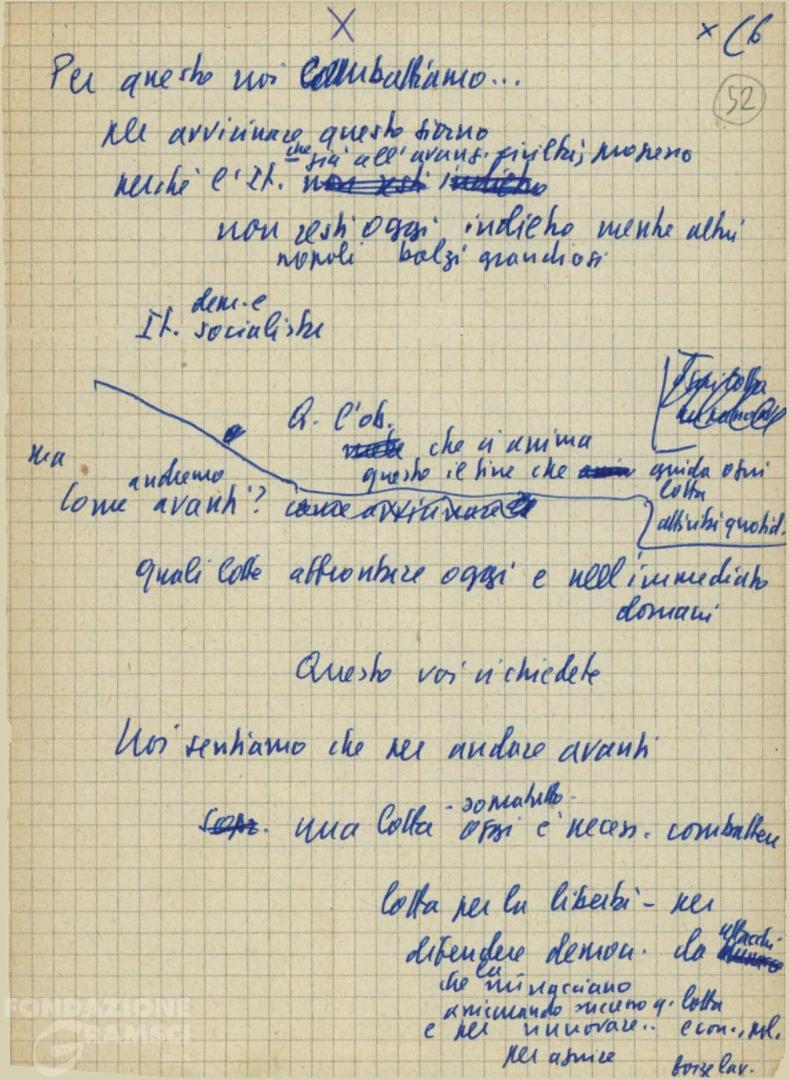 X
x C6
52
Per questo noi combattiamo...
per avvicinare questo giorno
che già all'avang. civiltà, progresso
perché l'It. non resti indietro
non resti oggi indietro mentre altri
popoli balzi grandiosi
dem. e
It. socialista
Q. l'ob.
che ci anima
ma
questo il fine che guida ogni
lotta
andremo
Come avanti? come avvicinare
attività quotid.
quali lotte affrontare oggi e nell'immediato
domani
Questo voi vi chiedete
Noi sentiamo che per andare avanti
- soprattutto -
sopr. una lotta oggi è necess. combattere
lotta per la libertà - per
attacchi
difendere democr. da
che la minacciano
assicurando successo q. lotta
e per rinnovare.. econ., pol.
per aprire forze lav.
FONDAZIONE
GRAMSCI